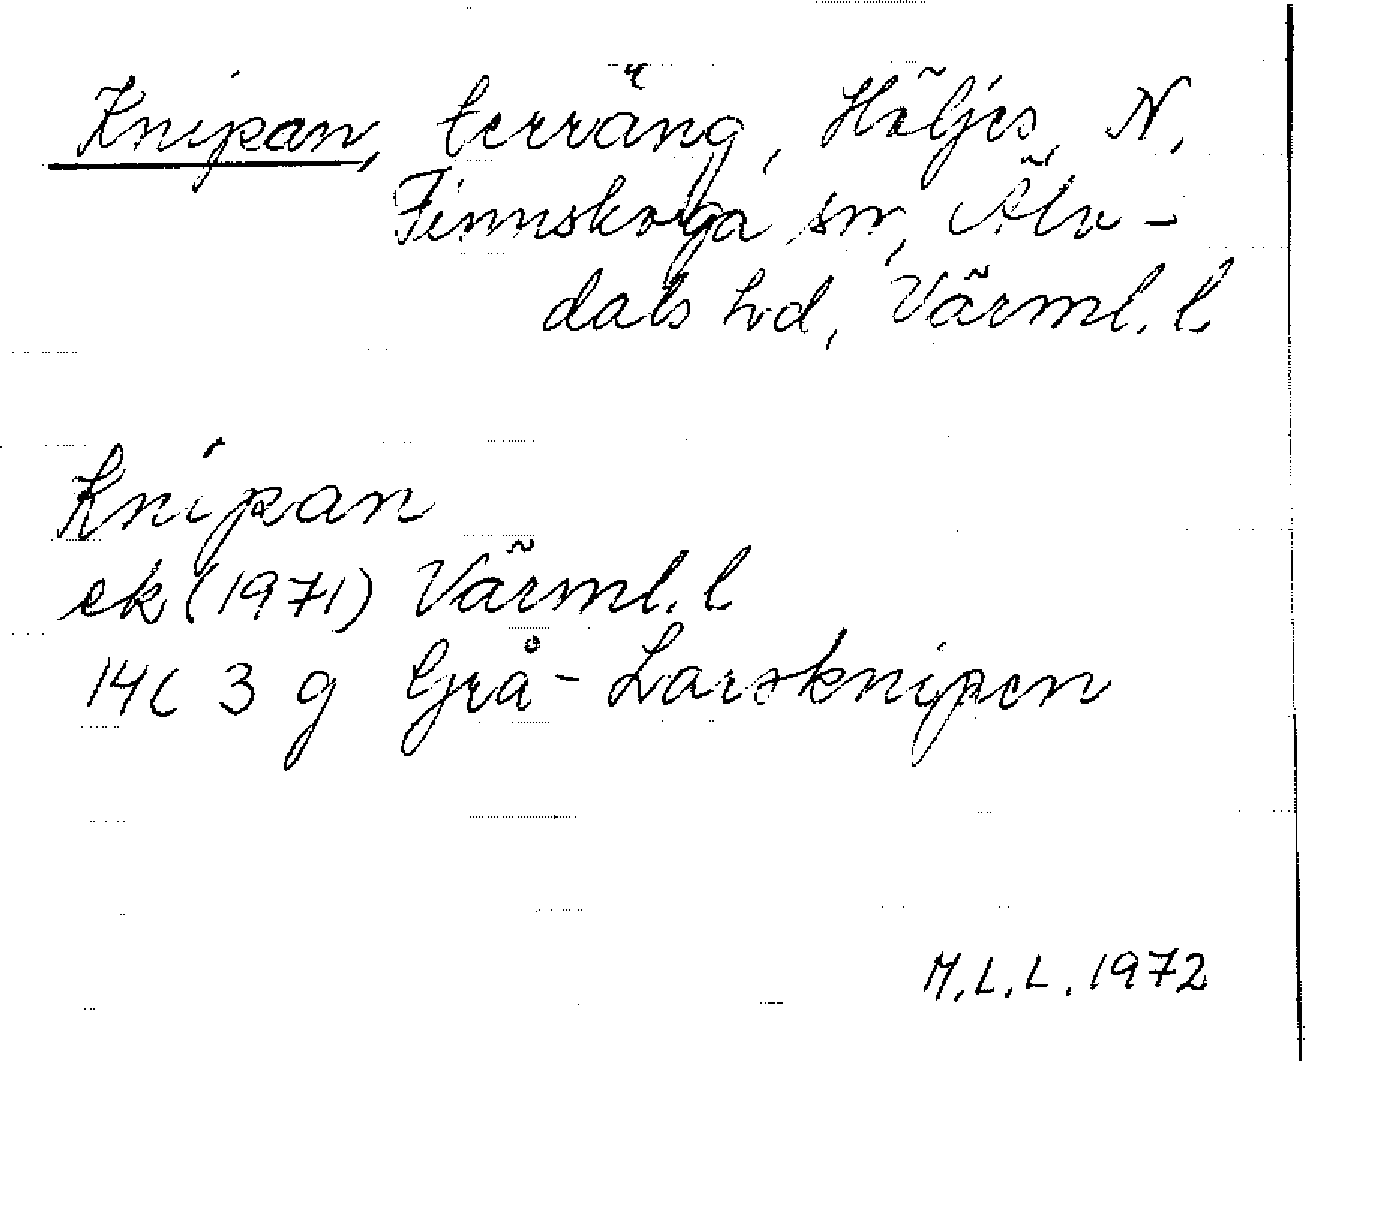 Knipan, terräng, Höljes, N.
Finnskoga sn, Älv-
dals hd, Värml. l
Knipan
ek (1971) Värml. l
14C 3 g Grå-Larsknipen
M.L.L. 1972